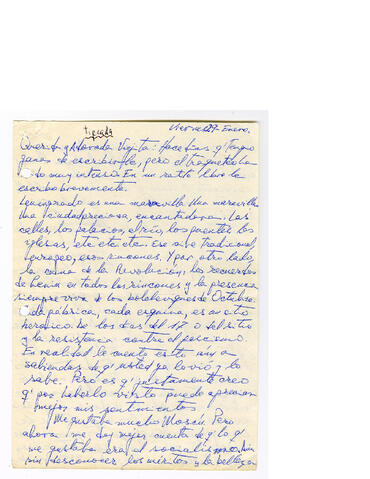 tipeada
Viernes 29 - Enero.
Querida y Adorada Viejita: Hace días q' tengo
ganas de escribirle, pero el traqueteo ha
sido muy intenso. En un ratito libre le
escribo brevemente.
Leningrado es una maravilla. Una maravilla
Una ciudad preciosa, encantadora. Las
calles, los palacios, el río, los puentes las
iglesias, etc etc etc. Ese aire tradicional,
europeo, esos rincones. Y por otro lado,
la cuna de la Revolución, los recuerdos
de Lenin en todos los rincones y la presencia
siempre viva de los bolcheviques de Octubre.
Cada fábrica, cada esquina, es un sitio
heroico. De los días del 17 o del sitio
y la resistencia contra el fascismo.
En realidad le cuento esto muy a
sabiendas de q' usted ya lo vió y lo
sabe. Pero es q' justamente creo
q' por haberlo visto puede apreciar
mejor mis sentimientos
Me gustaba mucho Moscú. Pero
ahora me doy mejor cuenta de q' lo q'
me gustaba era el socialismo
sin desconocer los méritos y la belleza